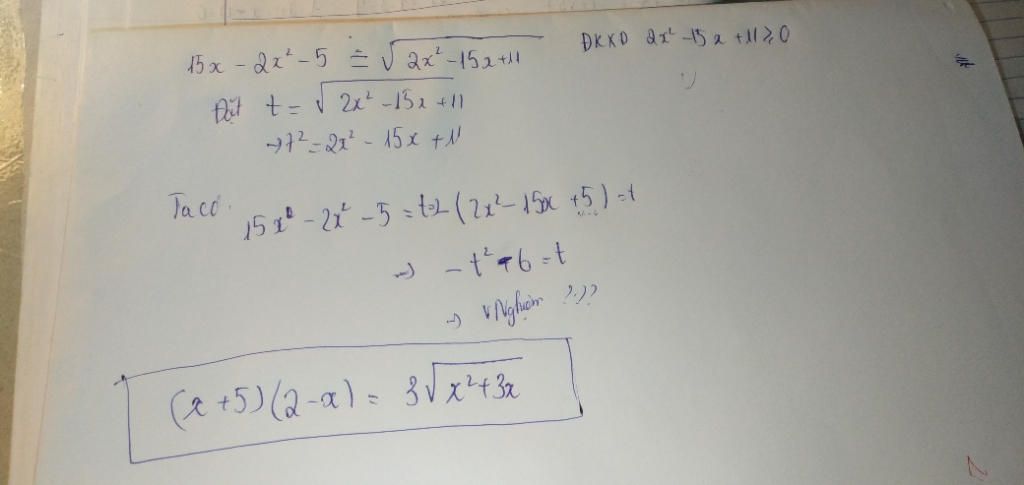 15x - 2x² - 5 = √(2x² - 15x + 11) ĐKXĐ 2x² - 15x + 11 ≥ 0
Đặt t = √(2x² - 15x + 11)
→ t² = 2x² - 15x + 11
Ta có.
15x - 2x² - 5 = t → (2x² - 15x + 5) = t
→ - t² + 6 = t
→ v Nghiệm ????
(x + 5)(2 - x) = 3√(x² + 3x)